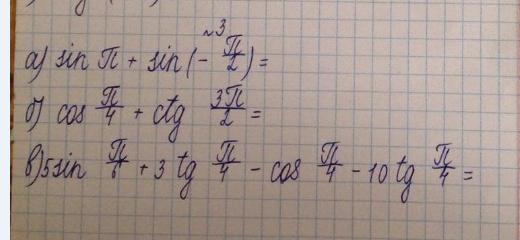 а) sin π + sin (- π/2) =
~3
б) cos π/4 + ctg 3π/2 =
в) 5sin π/6 + 3 tg π/4 - cos π/4 - 10 tg π/4 =